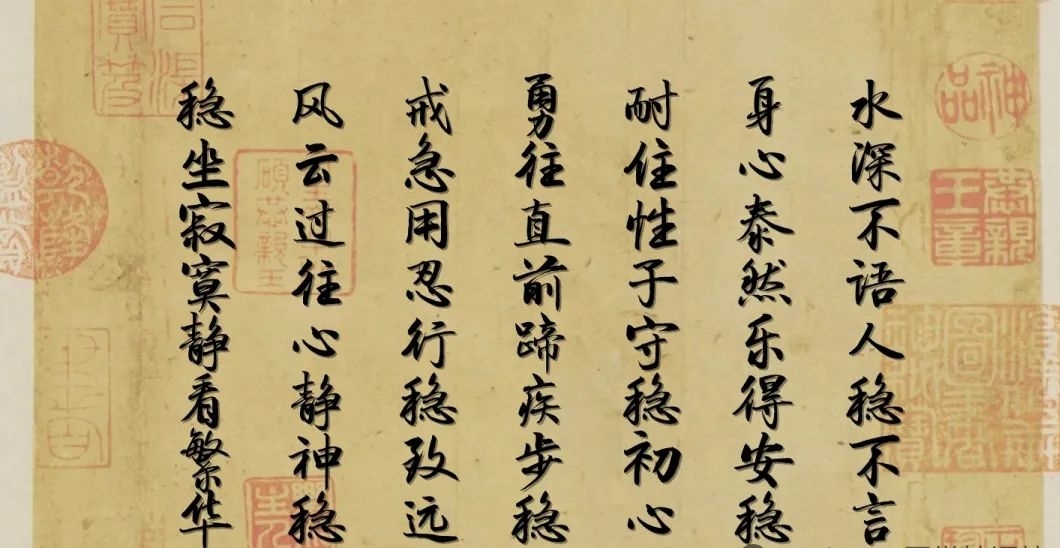 水深不语人稳不言
身心泰然乐得安稳
耐住性子守稳初心
勇往直前蹄疾步稳
戒急用忍行稳致远
风云过往心静神稳
稳坐寂寞静看繁华
神品